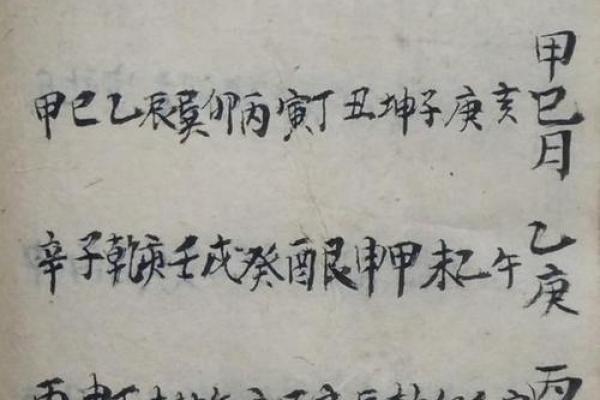 甲巳日
甲巳乙辰巽卯丙寅丁丑坤子庚亥
乙庚
辛子乾亥壬戌癸酉艮申甲未乙午
丙